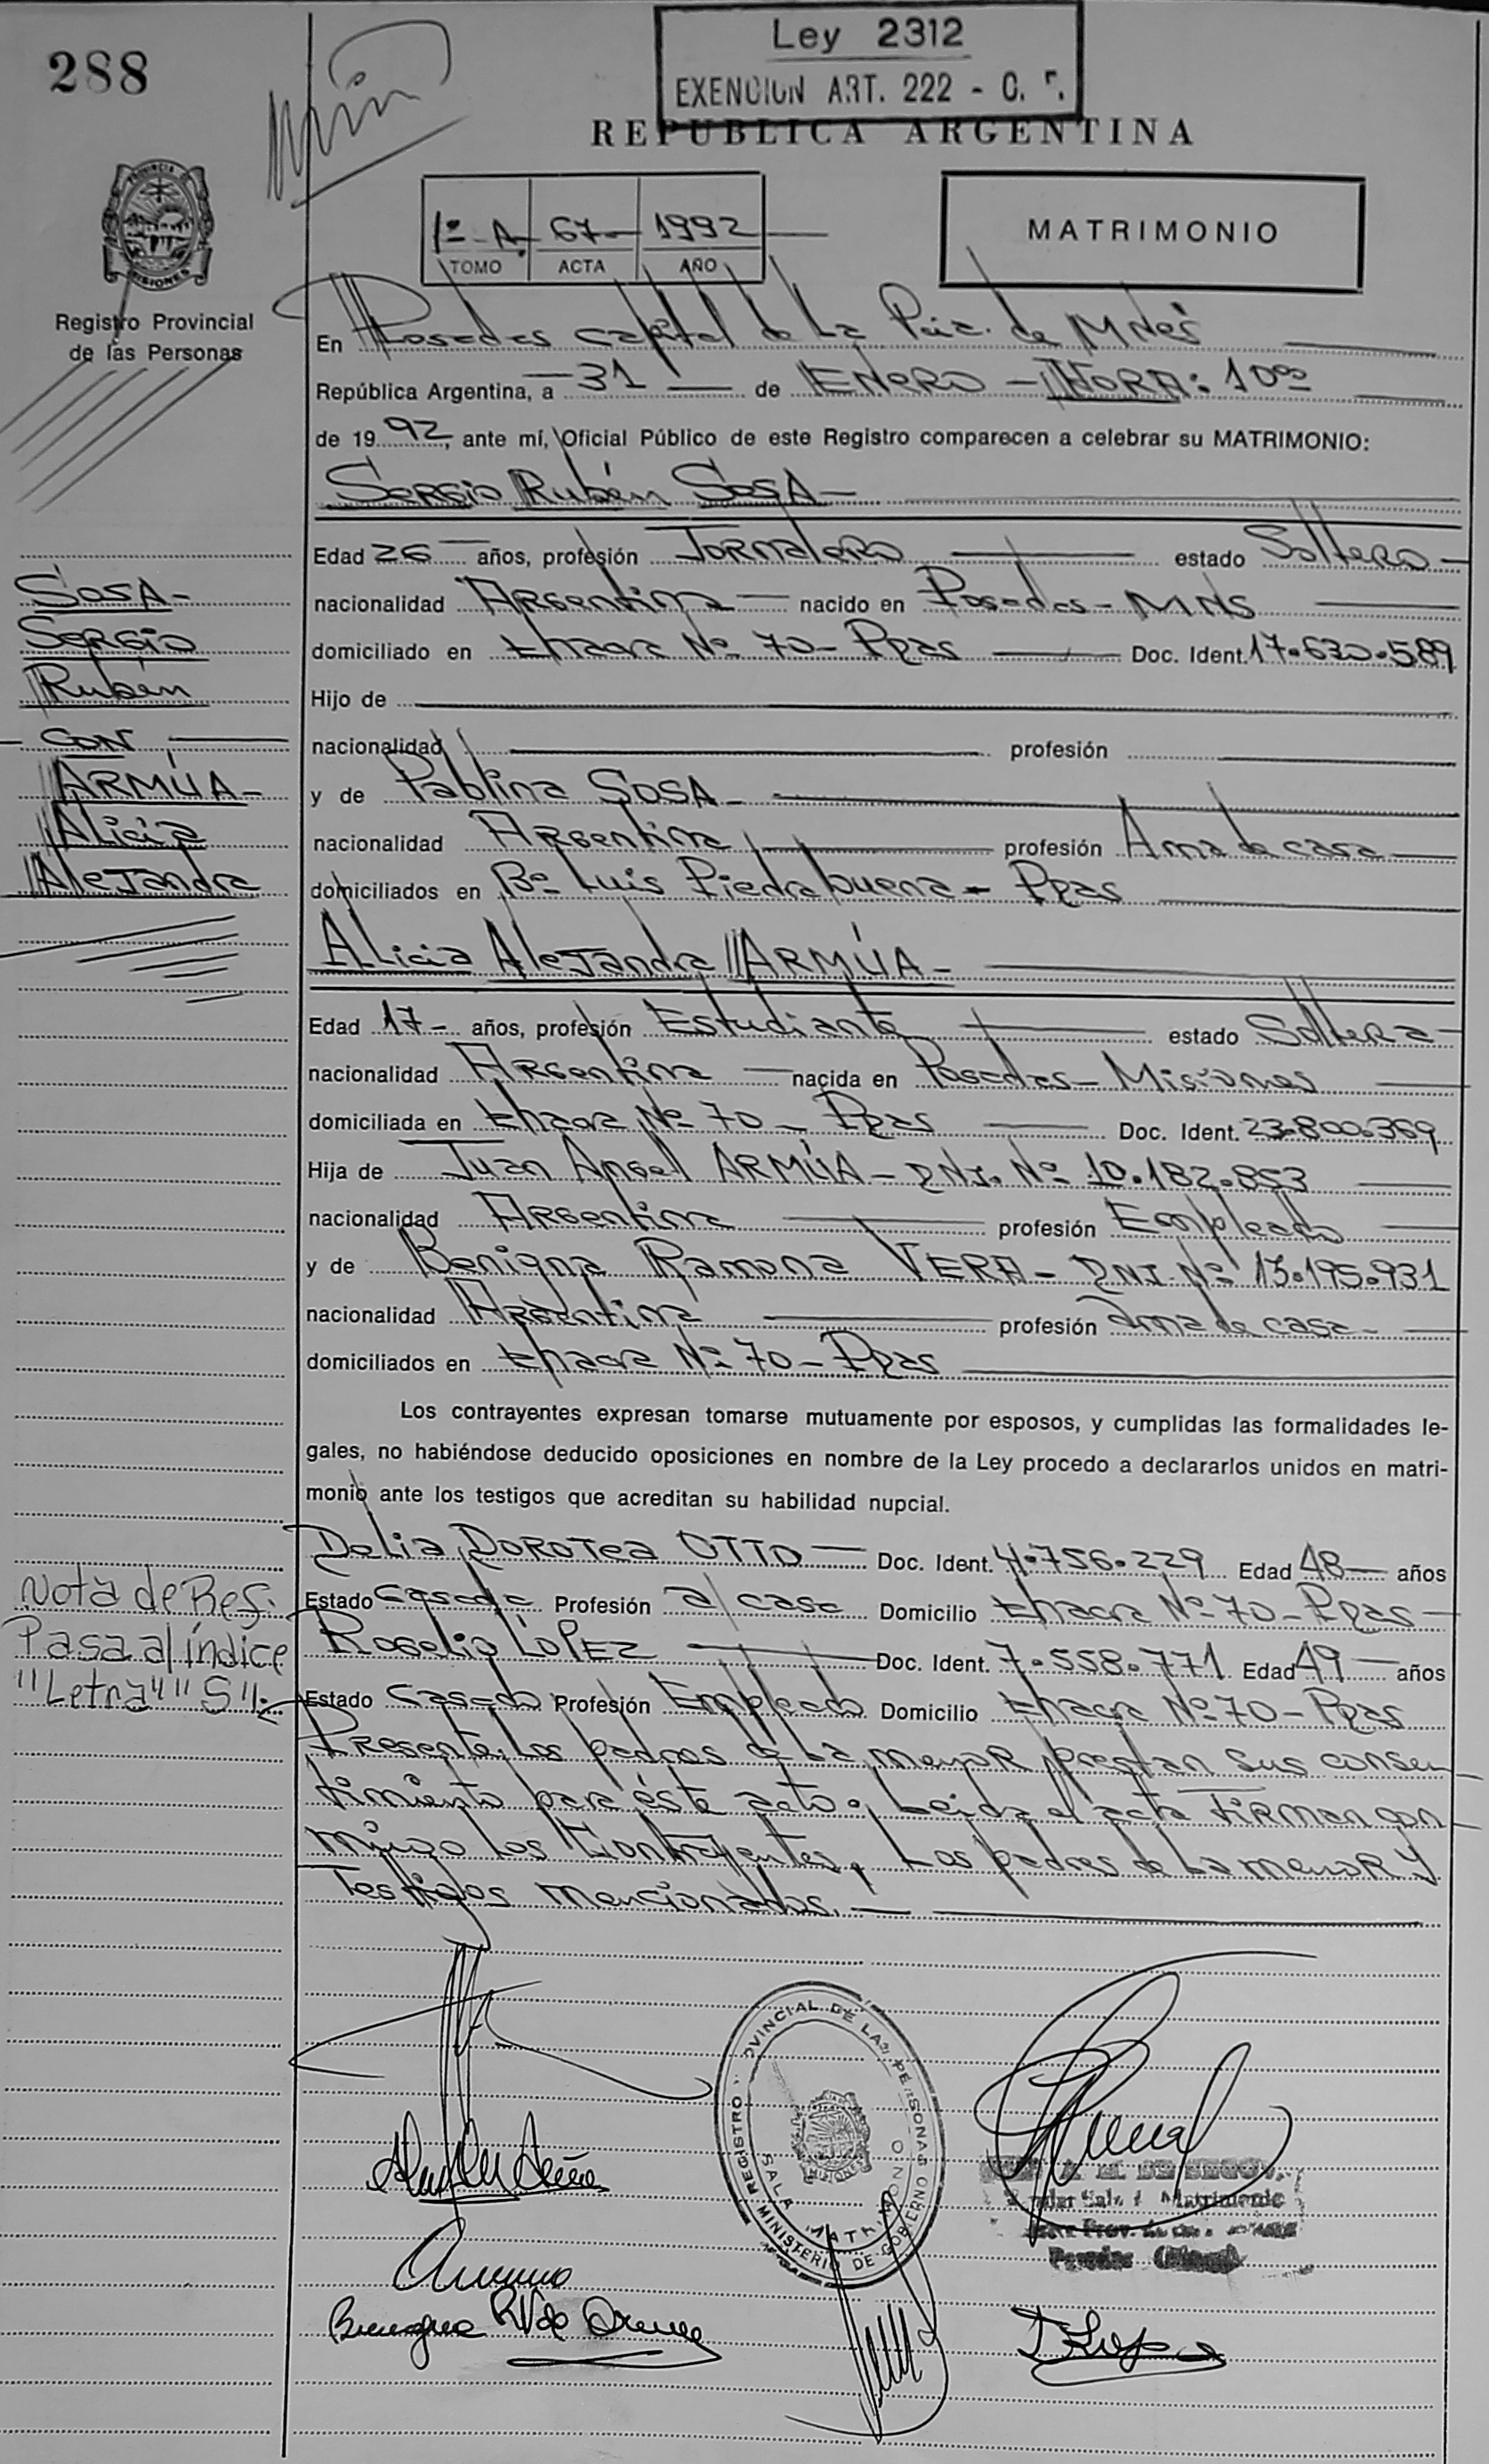 288
Ley 2312
EXENCION ART. 222 - C. F.
REPUBLICA ARGENTINA
PROVINCIA DE MISIONES
Registro Provincial
de las Personas
1º A 67 1992
TOMO ACTA AÑO
MATRIMONIO
En Posadas capital de La Pcia. de Mnes
República Argentina, a 31 de ENERO - HORA: 10⁰⁰
de 1992, ante mí, Oficial Público de este Registro comparecen a celebrar su MATRIMONIO:
Sergio Rubén SOSA-
Edad 26 años, profesión Jornalero estado Soltero-
nacionalidad Argentina nacido en Posadas-MNS
domiciliado en Chacra Nº 70- Ppas Doc. Ident. 17.630.589
Hijo de
nacionalidad profesión
y de Pablina SOSA-
nacionalidad Argentina profesión Ama de casa
domiciliados en Bº Luis Piedrabuena- Ppas
Alicia Alejandra ARMÚA-
Edad 17- años, profesión Estudiante estado Soltera
nacionalidad Argentina nacida en Posadas- Misiones
domiciliada en Chacra Nº 70- Ppas Doc. Ident. 23.800.369
Hija de Juan Angel ARMÚA- DNI. Nº 10.182.853
nacionalidad Argentina profesión Empleado
y de Benigna Ramona VERA- DNI Nº 13.195.931
nacionalidad Argentina profesión ama de casa-
domiciliados en Chacra Nº 70- Ppas
Los contrayentes expresan tomarse mutuamente por esposos, y cumplidas las formalidades le-
gales, no habiéndose deducido oposiciones en nombre de la Ley procedo a declararlos unidos en matri-
monio ante los testigos que acreditan su habilidad nupcial.
Delia DOROTEA OTTO Doc. Ident. 4.756.229 Edad 48 años
Estado Casada Profesión a/ casa Domicilio Chacra Nº 70- Ppas-
Rogelio LÓPEZ Doc. Ident. 7.558.771 Edad 49 años
Estado Casado Profesión Empleado Domicilio Chacra Nº 70- Ppas
Presente Los padres de La menor prestan sus consen-
timiento para éste acto. Leída el acta Firman con-
migo Los Contrayentes, Los padres de La menor y
Testigos mencionados.
SOSA-
Sergio
Rubén
CON
ARMÚA-
Alicia
Alejandra
Nota de Ref.
Pasa al índice
"Letra" "S".
REGISTRO PROVINCIAL DE LAS PERSONAS
SALA MATRIMONIO
MINISTERIO DE GOBIERNO
MISIONES
Matrimonio
Posadas
Benigna RV de